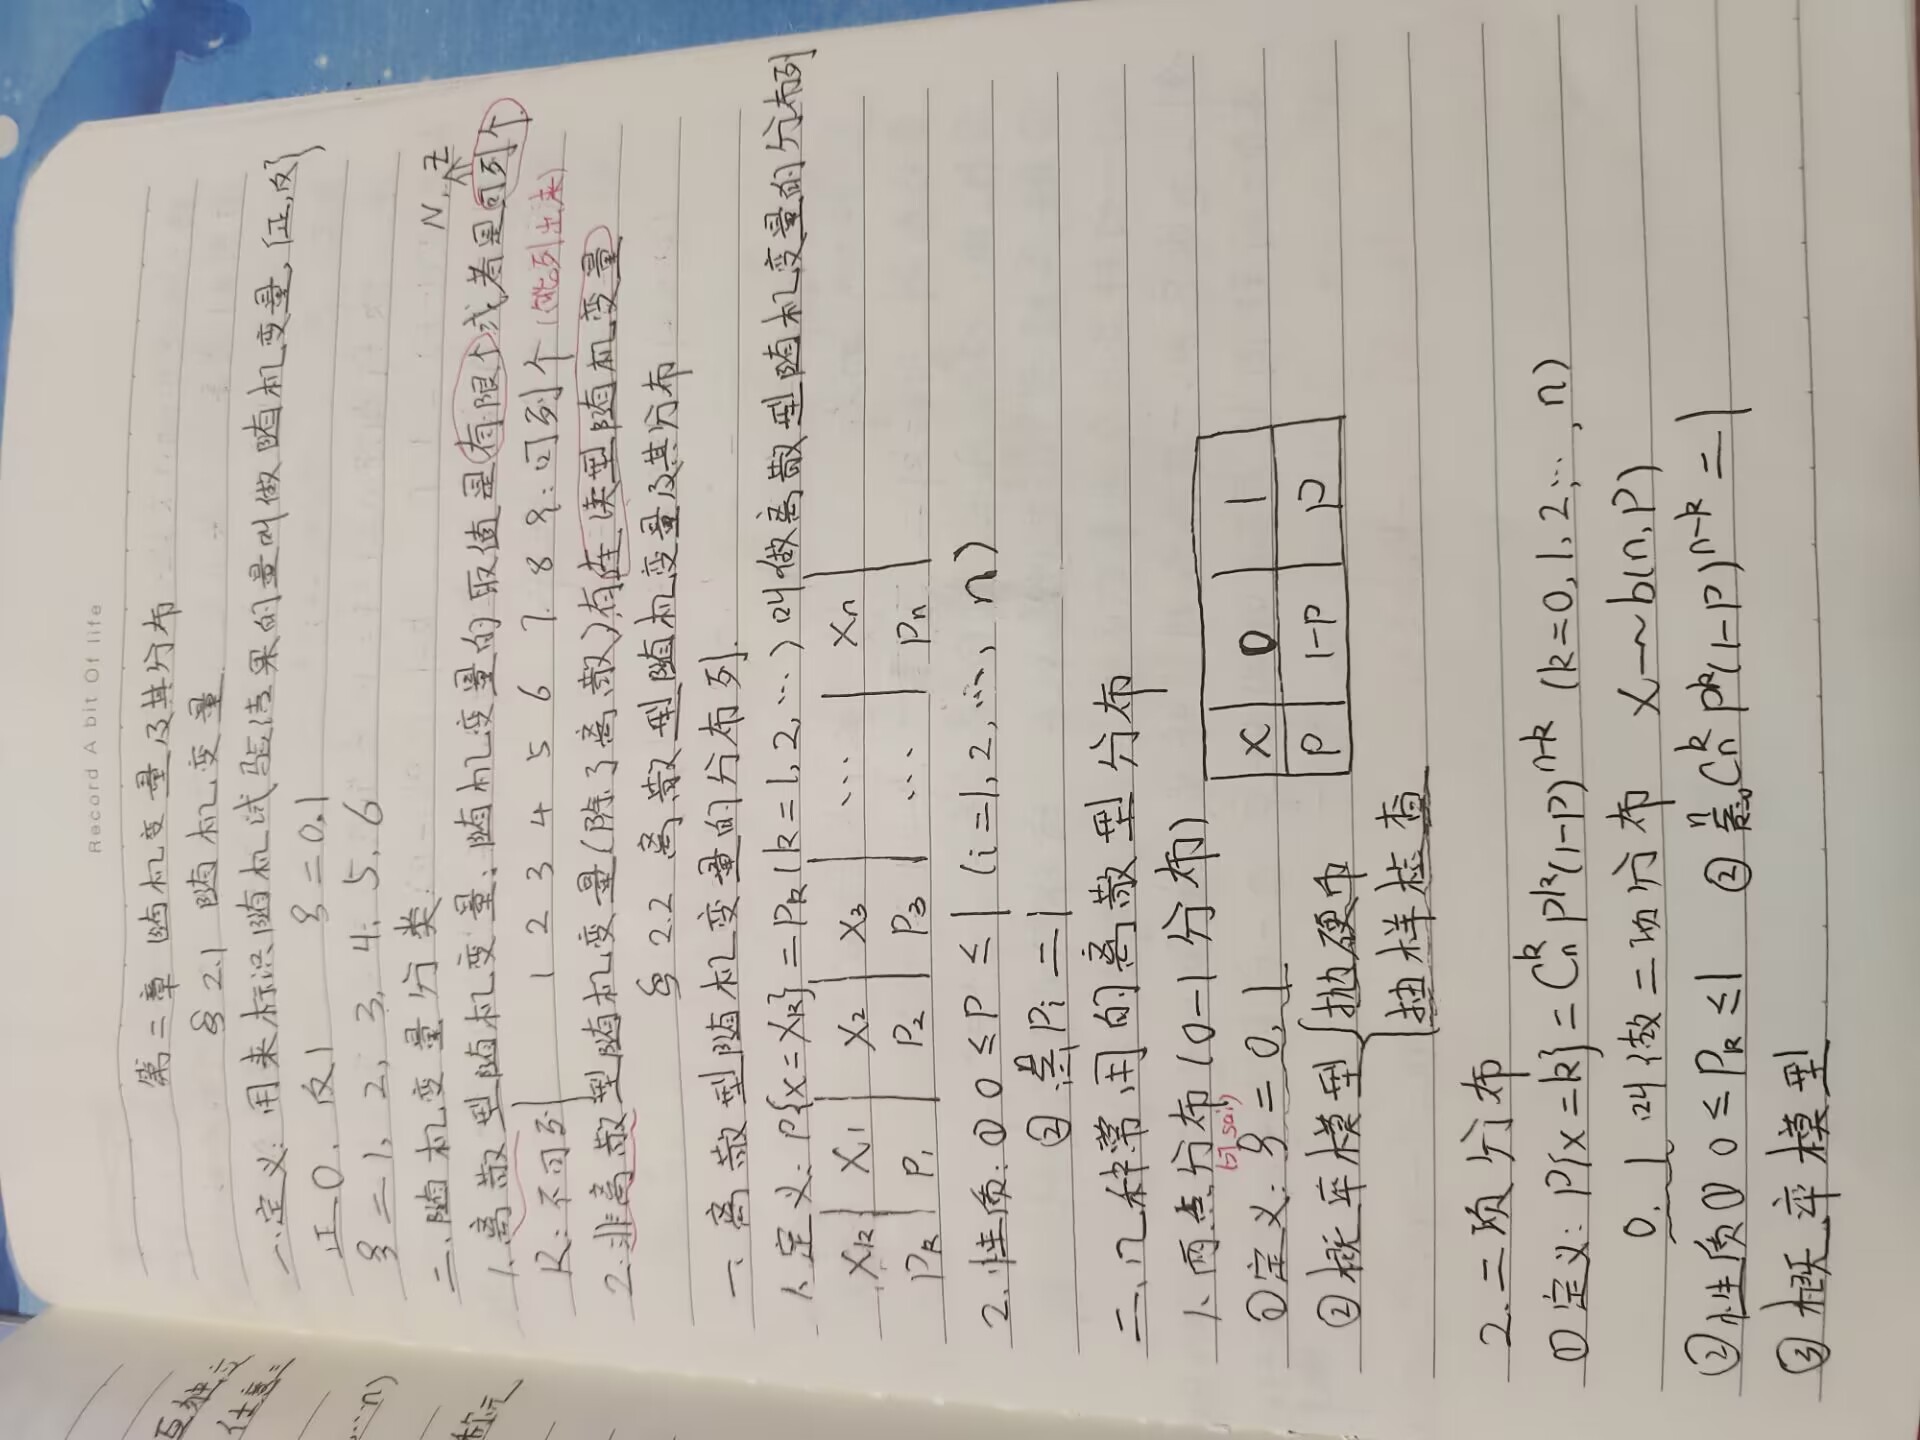 Record A bit Of life
第二章 随机变量及其分布
§2.1 随机变量
一、定义：用来标识随机试验结果的量叫做随机变量，{正，反}
正—0，反1 ξ=0,1
ξ=1，2，3，4，5，6
二、随机变量分类
N
1、离散型随机变量：随机变量的取值是有限个或者是可列个
R：不可列 1 2 3 4 5 6 7 8 9：可列个（能列出来）
2.非离散型随机变量（除了离散）有连续型随机变量
§2.2 离散型随机变量及其分布
一、离散型随机变量的分布列
1、定义：P{X=XR}=PR（R=1,2,…）叫做离散型随机变量的分布列
XR X1 X2 X3 … Xn
PR P1 P2 P3 … Pn
2.性质：① 0≤P≤1（i=1,2,…,n）
② Pi=1
二、几种常用的离散型分布
1、两点分布（0-1分布）
①定义：ξ=0，1
X 0 1
P 1-P P
②概率模型{抛硬币
抽样检查
2.二项分布
①定义：P{X=k}=Cₙᵏ Pᵏ(1-P)ⁿ⁻ᵏ（k=0,1,2,…,n）
0，1 叫做二项分布 X~b(n,P)
②性质① 0≤PR≤1 ② Cₙᵏ Pᵏ(1-P)ⁿ⁻ᵏ=1
③概率模型
互独立
任意
…n)